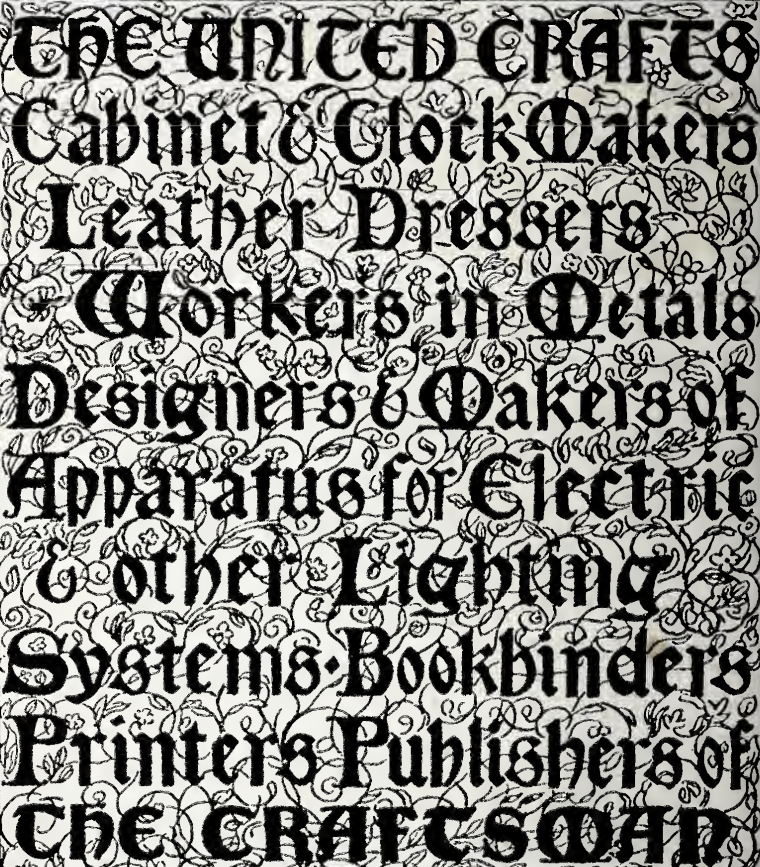 THE UNITED CRAFTS
Cabinet & Clock Makers
Leather Dressers
Workers in Metals
Designers & Makers of
Apparatus for Electric
& other Lighting
Systems · Bookbinders
Printers Publishers of
THE CRAFTSMAN